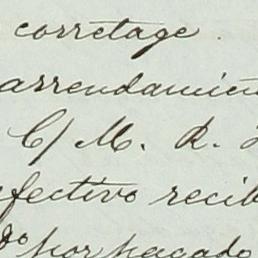 corretage.
arrendamien
C/ M. R.
efectivo recib
do por pagado